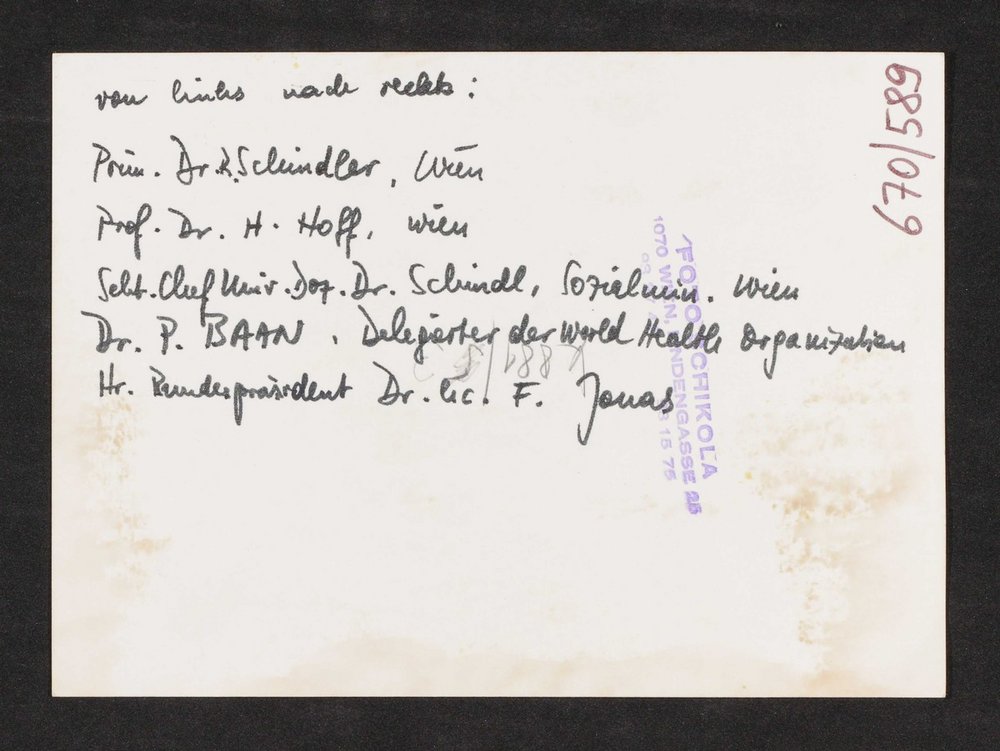 von links nach rechts:
Prim. Dr. R. Schindler, Wien
Prof. Dr. H. Hoff, Wien
Sekt. Chef Univ. Doz. Dr. Schindl, Sozialmin. Wien
Dr. P. BAAN, Delegierter der World Health Organization
Hr. Bundespräsident Dr. h.c. F. Jonas
670/589
FOTO SCHIKOLA
1070 WIEN, LINDENGASSE 25
15 75